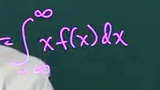 = ∫_{-∞}^{∞} x f(x) dx